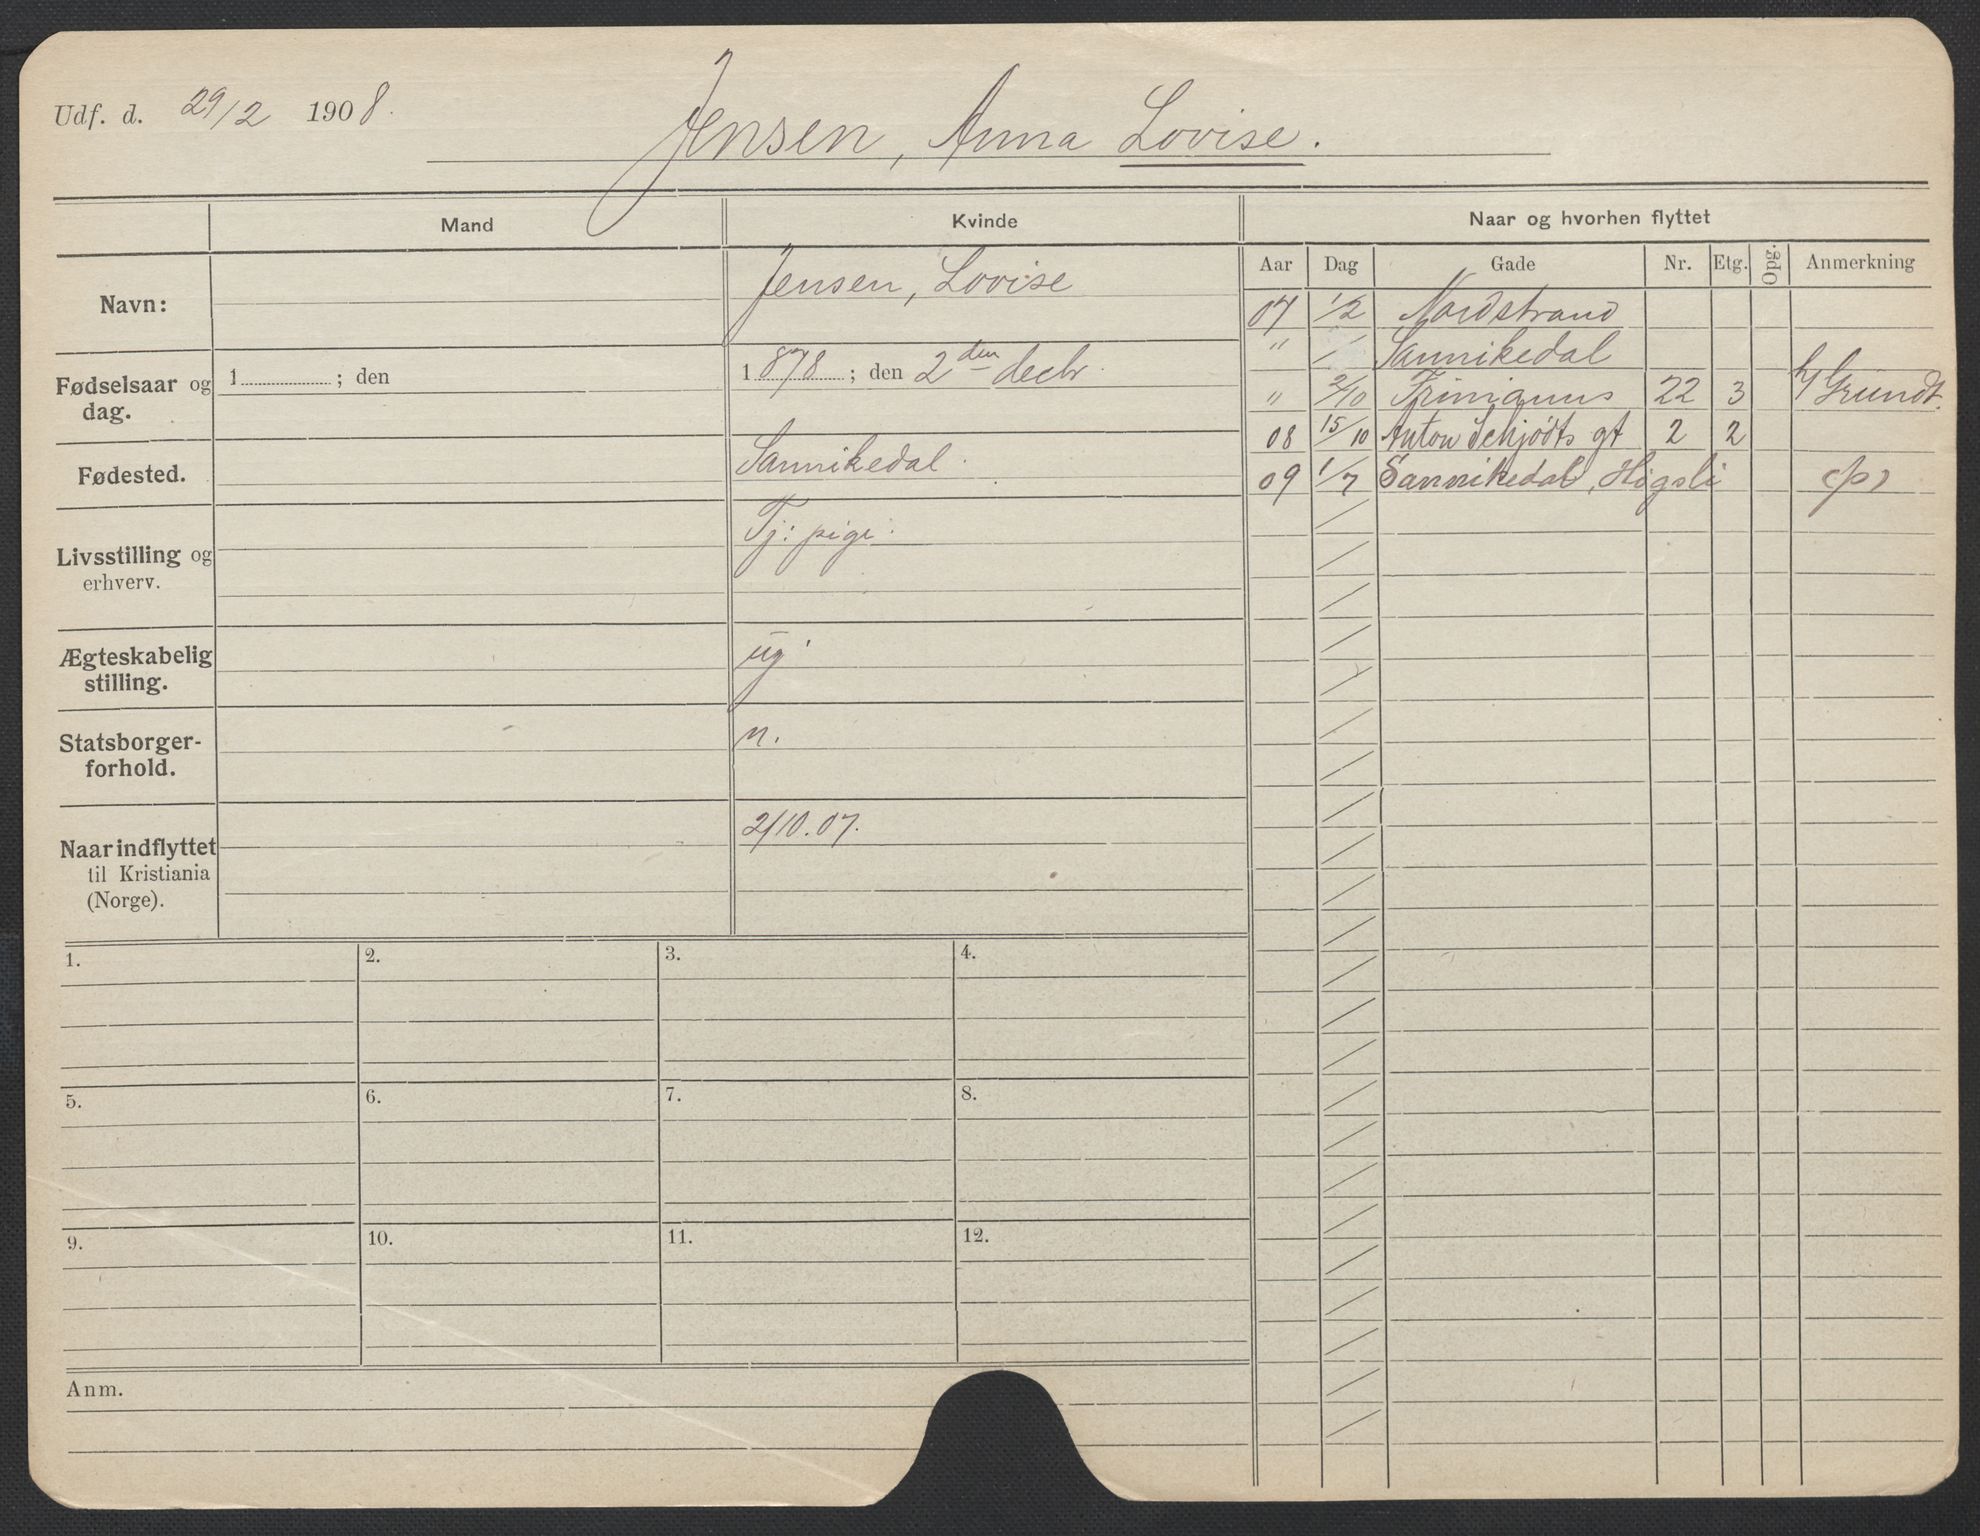 Udf. d. 29/2 1908.
Jensen, Anna Lovise.
Mand
Kvinde
Naar og hvorhen flyttet
Aar Dag Gade Nr. Etg. Opg. Anmerkning
Navn:
Jensen, Lovise
Fødselsaar og
dag.
1 ; den
1878 ; den 2den decbr.
Fødested.
Sannikedal.
Livsstilling og
erhverv.
Tj: pige.
Ægteskabelig
stilling.
ug
Statsborger-
forhold.
n.
Naar indflyttet
til Kristiania
(Norge).
2/10.07.
07 1/2 Nordstrand
" / Sannikedal
" 2/10 22 3 h/ Grundt.
08 15/10 Anton Schjödts gt 2 2
09 1/7 Sannikedal, Høgsli (p)
1.
2.
3.
4.
5.
6.
7.
8.
9.
10.
11.
12.
Anm.